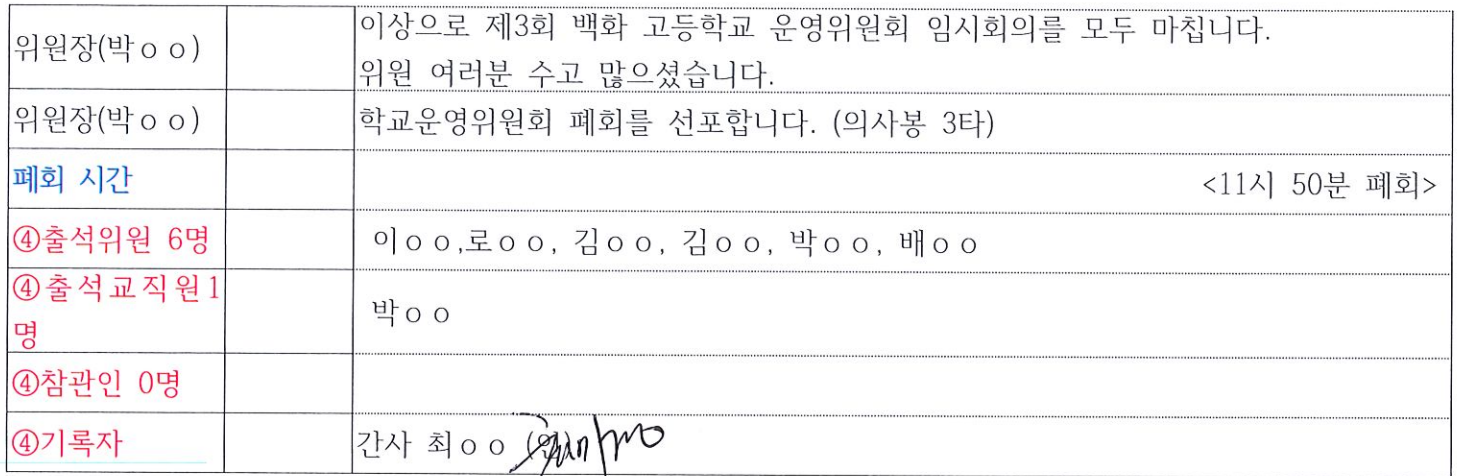 위원장(박ㅇㅇ)
이상으로 제3회 백화 고등학교 운영위원회 임시회의를 모두 마칩니다.
위원 여러분 수고 많으셨습니다.
위원장(박ㅇㅇ)
학교운영위원회 폐회를 선포합니다. (의사봉 3타)
폐회 시간
<11시 50분 폐회>
④출석위원 6명
이ㅇㅇ,로ㅇㅇ, 김ㅇㅇ, 김ㅇㅇ, 박ㅇㅇ, 배ㅇㅇ
④출석교직원1
명
박ㅇㅇ
④참관인 0명
④기록자
간사 최ㅇㅇ (인)